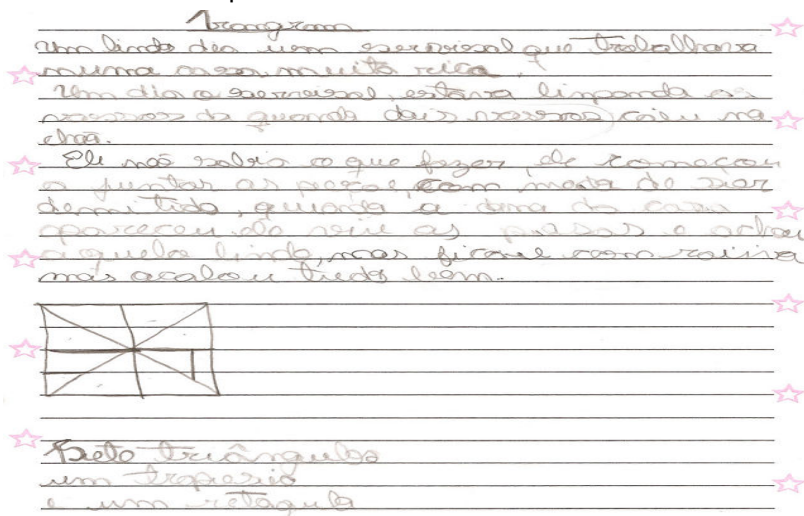 Trangram
Um lindo dia uem serviçal que trabalhava
numa casa muito rica.
Um dia o serviçal, estava limpando os
vassos da quando dois vassos caiu no
chão.
Ele não sabia o que fazer, ele começou
a juntar as peças, com medo de ser
demitido, quando a dona da casa
apareceu ela viu as pessas e achou
aquelo lindo, mas ficou com raiva
mas acabou tudo bem.
Oito triângulos
um trapesio
e um retagulo